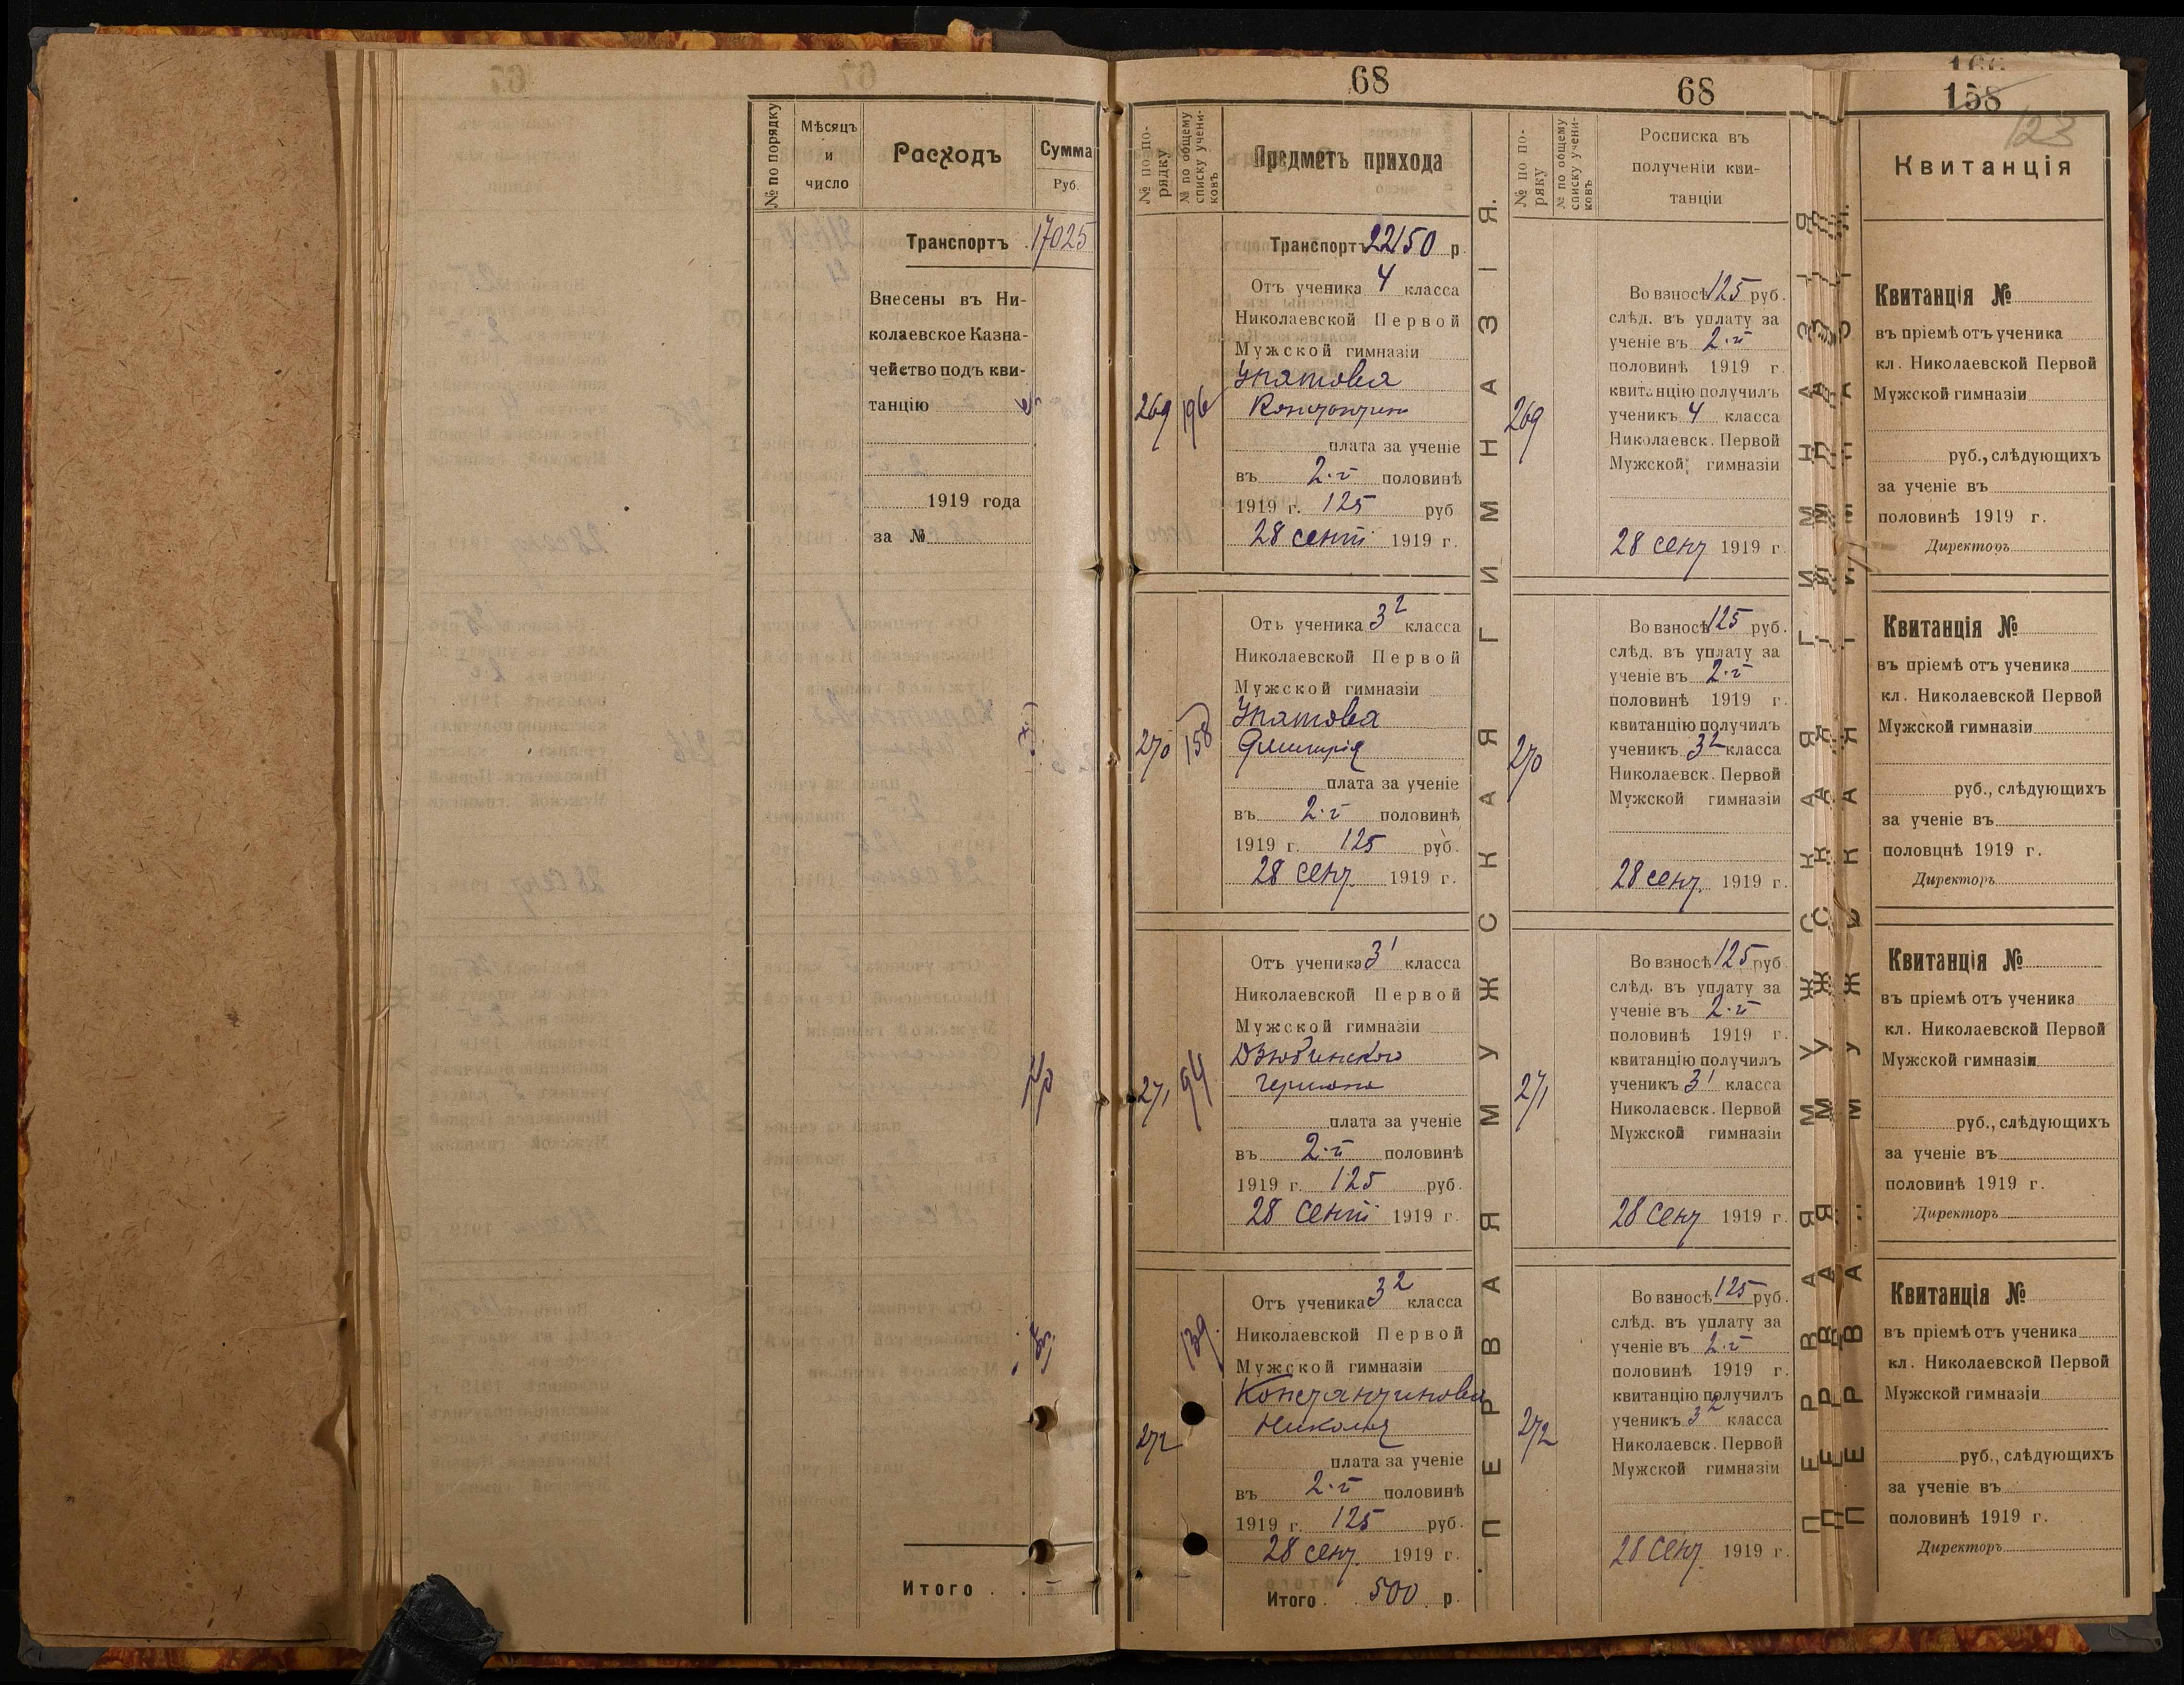 № по порядку
Мѣсяцъ
и
число
Расходъ
Сумма
Руб.
Транспортъ . 17025
Внесены въ Ни-
колаевское Казна-
чейство подъ кви-
танцію
1919 года
за №
Итого . .
68
№ по по-
рядку
№ по общему
списку учени-
ковъ
Предметъ прихода
Транспортъ 22150 р.
269
196
Отъ ученика 4 класса
Николаевской Первой
Мужской гимназіи
Игнатова
Константин
плата за ученіе
въ 2-й половинѣ
1919 г. 125 руб
28 сент 1919 г.
270
158
Отъ ученика 3² класса
Николаевской Первой
Мужской гимназіи
Игнатова
Дмитрія
плата за ученіе
въ 2-й половинѣ
1919 г. 125 руб.
28 сент. 1919 г.
271
94
Отъ ученика 3¹ класса
Николаевской Первой
Мужской гимназіи
Дзюбинскаго
Германа
плата за ученіе
въ 2-й половинѣ
1919 г. 125 руб.
28 сент 1919 г.
272
139.
Отъ ученика 3² класса
Николаевской Первой
Мужской гимназіи
Константинова
Николая
плата за ученіе
въ 2-й половинѣ
1919 г. 125 руб.
28 сент. 1919 г.
Итого . 500 р.
ПЕРВАЯ МУЖСКАЯ ГИМНАЗІЯ.
68
№ по по-
ряку
№ по общему
списку учени-
ковъ
Росписка въ
полученіи кви-
танціи
269
Во взносѣ 125 руб.
слѣд. въ уплату за
ученіе въ 2-й
половинѣ 1919 г.
квитанцію получилъ
ученикъ 4 класса
Николаевск. Первой
Мужской гимназіи
28 сент 1919 г.
270
Во взносѣ 125 руб.
слѣд. въ уплату за
ученіе въ 2-й
половинѣ 1919 г.
квитанцію получилъ
ученикъ 3² класса
Николаевск. Первой
Мужской гимназіи
28 сент. 1919 г.
271
Во взносѣ 125 руб
слѣд. въ уплату за
ученіе въ 2-й
половинѣ 1919 г.
квитанцію получилъ
ученикъ 3¹ класса
Николаевск. Первой
Мужской гимназіи
28 сент 1919 г.
272
Во взносѣ 125 руб.
слѣд. въ уплату за
ученіе въ 2-й
половинѣ 1919 г.
квитанцію получилъ
ученикъ 3² класса
Николаевск. Первой
Мужской гимназіи
28 сент. 1919 г.
158
123
Квитанція
Квитанція №
въ пріемѣ отъ ученика
кл. Николаевской Первой
Мужской гимназіи
руб., слѣдующихъ
за ученіе въ
половинѣ 1919 г.
Директоръ
Квитанція №
въ пріемѣ отъ ученика
кл. Николаевской Первой
Мужской гимназіи
руб., слѣдующихъ
за ученіе въ
половцнѣ 1919 г.
Директоръ
Квитанція №
въ пріемѣ отъ ученика
кл. Николаевской Первой
Мужской гимназіи
руб., слѣдующихъ
за ученіе въ
половинѣ 1919 г.
Директоръ
Квитанція №
въ пріемѣ отъ ученика
кл. Николаевской Первой
Мужской гимназіи
руб., слѣдующихъ
за ученіе въ
половинѣ 1919 г.
Директоръ